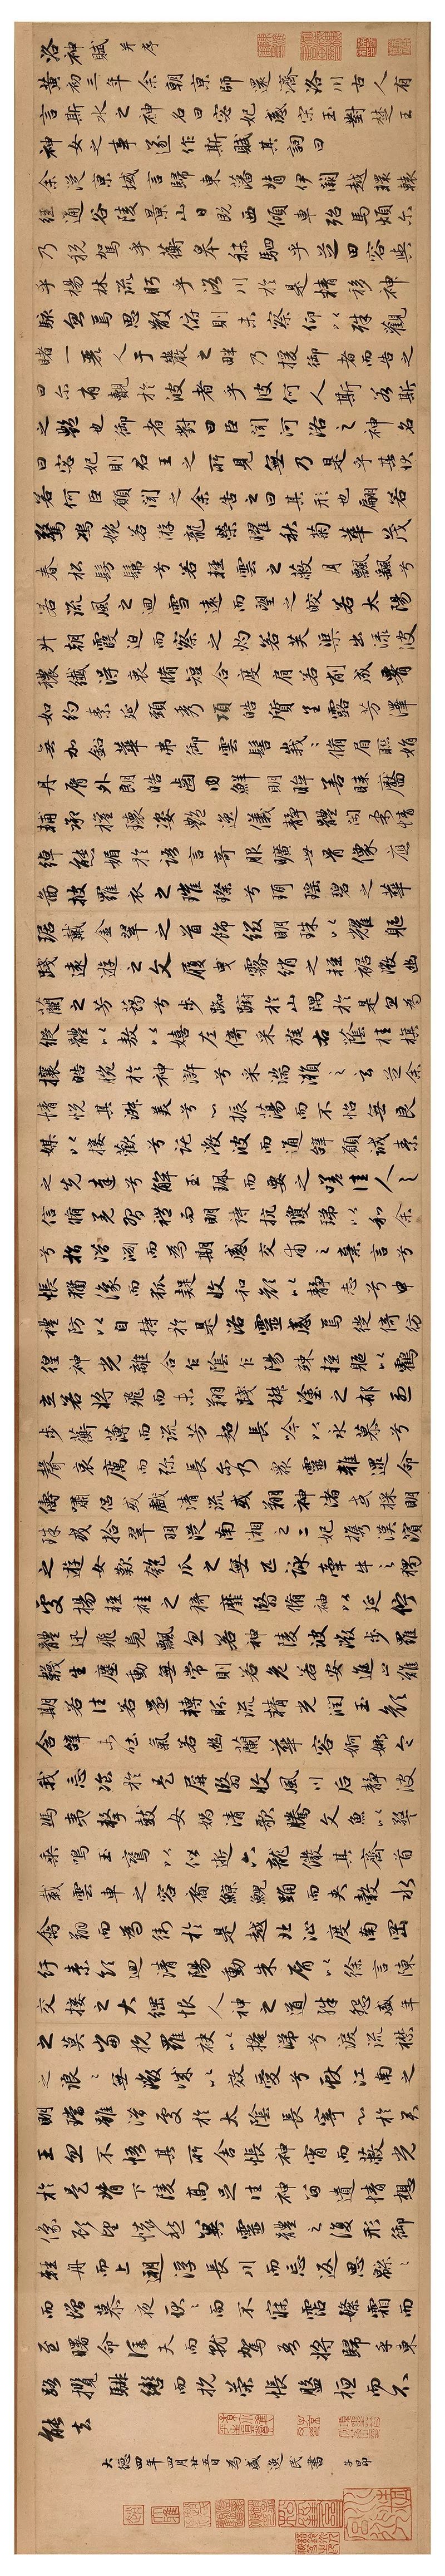 洛神賦 并序
黃初三年余朝京師還濟洛川古人有
言斯水之神名曰宓妃感宋玉對楚王
神女之事遂作斯賦其詞曰
余從京域言歸東藩背伊闕越轘轅
經通谷陵景山日既西傾車殆馬煩尔
乃稅駕乎蘅皋秣駟乎芝田容與
乎楊林流眄乎洛川於是精移神
駭忽焉思散俯則未察仰以殊觀
睹一麗人于巖之畔乃援御者而告之
曰尔有覿於彼者乎彼何人斯若斯
之艷也御者對曰臣聞河洛之神名
曰宓妃則君王之所見無乃是乎其狀
若何臣願聞之余告之曰其形也翩若
驚鴻婉若游龍榮曜秋菊華茂
春松髣髴兮若輕雲之蔽月飄颻兮
若流風之迴雪遠而望之皎若太陽
升朝霞迫而察之灼若芙渠出淥波
穠纖得衷脩短合度肩若削成腰
如約素延頸秀項皓質呈露芳澤
無加鉛華弗御雲髻峩〻脩眉聯娟
丹脣外朗皓齒內鮮明眸善睞靨
輔承權瓌姿艷逸儀靜體閑柔情
綽態媚於語言奇服曠世骨像應
圖披羅衣之璀璨兮珥瑤碧之華
琚戴金翠之首飾綴明珠以耀軀
踐遠遊之文履曳霧綃之輕裾微幽
蘭之芳藹兮步踟躕於山隅於是忽焉
縱體以敖以嬉左倚采旄右蔭桂旗
攘皓腕於神滸兮采湍瀨之玄芝余
情悅其淑美兮心振蕩而不怡無良
媒以接歡兮託微波而通辭願誠素
之先達兮解玉珮而要之嗟佳人之
信脩羌習禮而明詩抗瓊珶以和余
兮指潛淵而為期感交甫之棄言兮
悵猶豫而狐疑收和顏以靜志兮申
禮防以自持於是洛靈感焉徙倚彷
徨神光離合乍陰乍陽竦輕軀以鶴
立若將飛而未翔踐椒塗之郁烈
步蘅薄而流芳超長吟以永慕兮
聲哀厲而弥長尔乃衆靈雜遝命
儔嘯侶或戲清流或翔神渚或採明
珠或拾翠羽從南湘之二妃攜漢濱
之遊女歎匏瓜之無匹詠牽牛之獨
處揚輕袿之猗靡翳脩袖以延佇
體迅飛鳧飄忽若神陵波微步羅
襪生塵動無常則若危若安進止難
期若往若還轉眄流精光潤玉顏
含辭未吐氣若幽蘭華容婀娜令
我忘飡於是屏翳收風川后靜波
馮夷擊鼓女媧清歌騰文魚以警
乘鳴玉鸞以偕逝六龍儼其齊首
載雲車之容裔鯨鯢踊而夾轂水
禽翔而為衛於是越北沚度南岡
紆素領迴清陽動朱脣以徐言陳
交接之大綱恨人神之道殊怨盛年
之莫當抗羅袂以掩涕兮淚流襟
之浪〻無微誠以效愛兮獻江南之
明璫雖潛處於太陰長寄心於君
王忽不悟其所舍悵神宵而蔽光
於是背下陵高足往神留遺情想
像顧望懷愁冀靈體之復形御
輕舟而上遡浮長川而忘返思緜〻
而增慕夜耿〻而不寐霑繁霜而
至曙命僕夫而就駕吾將歸乎東
路攬騑轡而抗策悵盤桓而不
能去
大德四年四月廿五日為盛逸民書 子昂